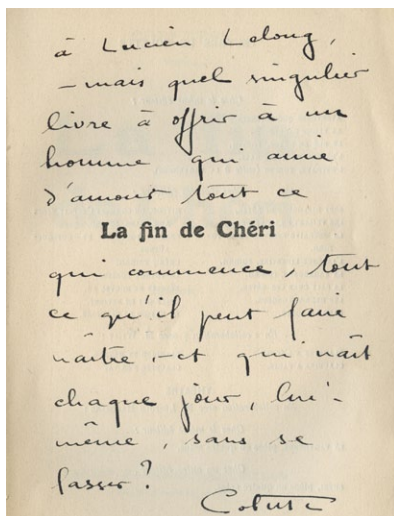 à Lucien Lelong,
– mais quel singulier
livre à offrir à un
homme qui aime
d'amour tout ce
La fin de Chéri
qui commence, tout
ce qu'il peut faire
naître – et qui naît
chaque jour, lui-
même, sans se
lasser ?
Colette